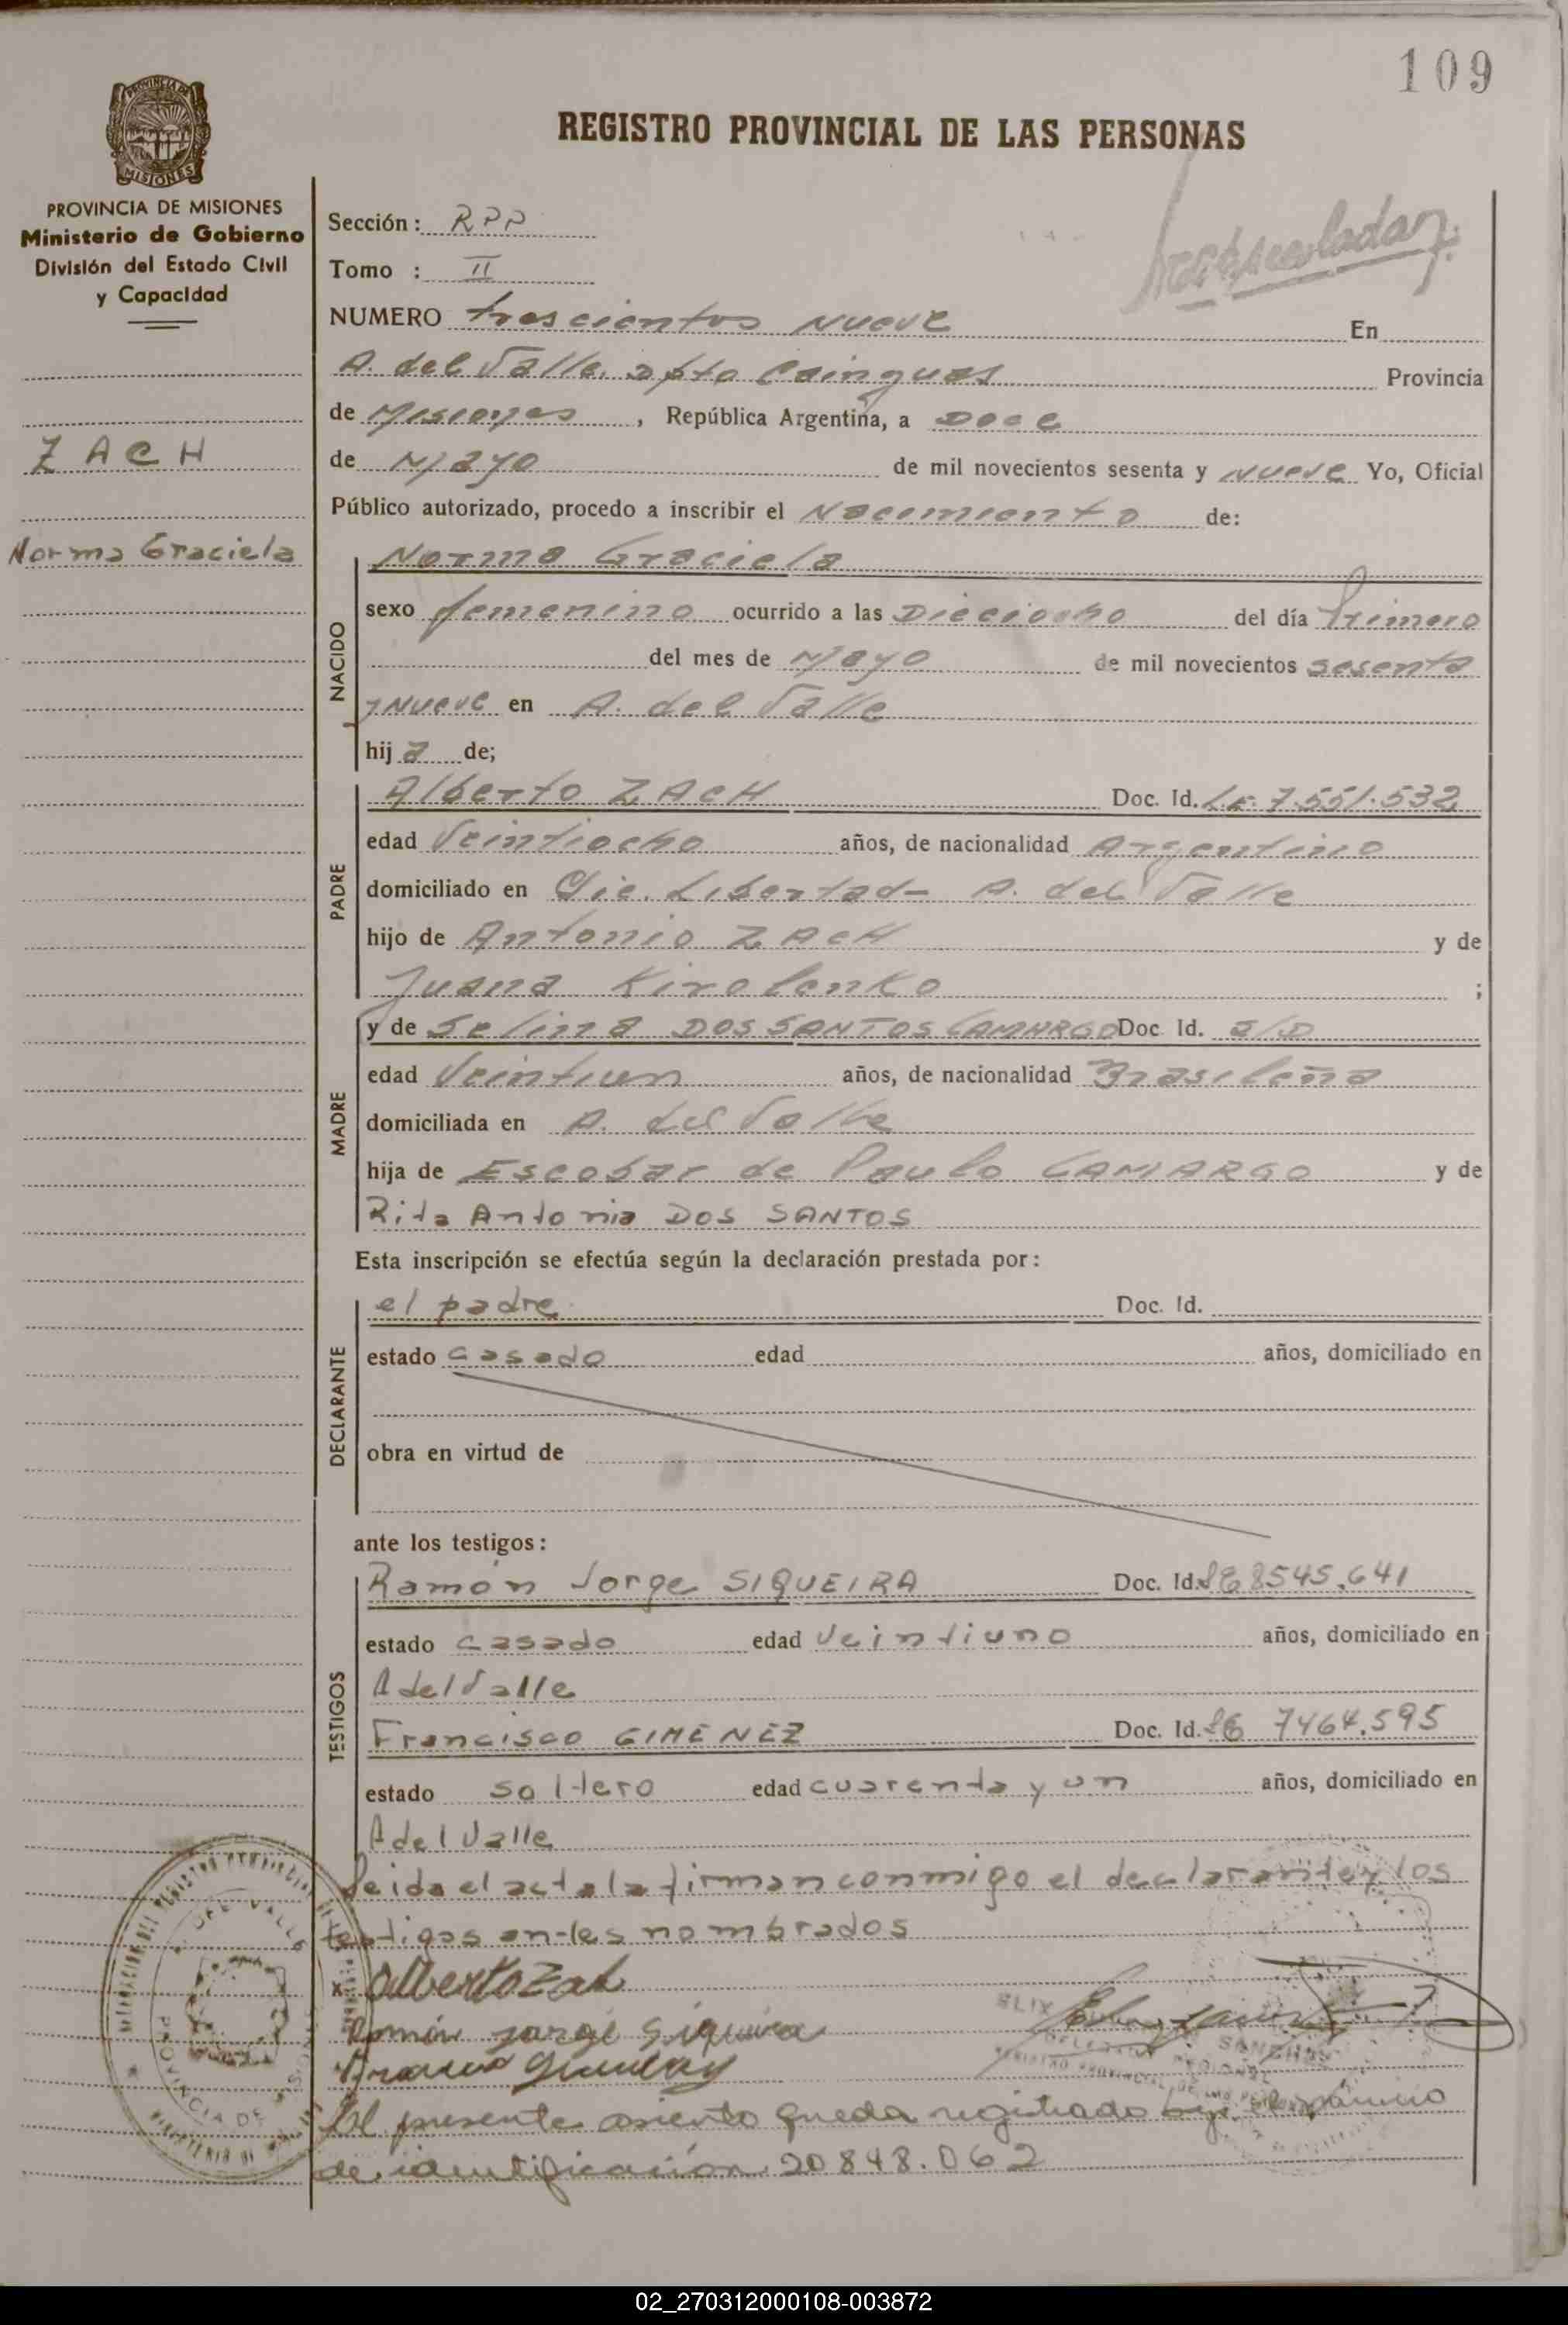 109
REGISTRO PROVINCIAL DE LAS PERSONAS
MISIONES
PROVINCIA DE MISIONES
Ministerio de Gobierno
División del Estado Civil
y Capacidad
ZACH
Norma Graciela
Sección: RPP
Tomo : II
NUMERO trescientos nueve En
A. del Valle. Dpto Cainguas Provincia
de Misiones, República Argentina, a Doce
de Mayo de mil novecientos sesenta y nueve Yo, Oficial
Público autorizado, procedo a inscribir el Nacimiento de:
NACIDO
Norma Graciela
sexo femenino ocurrido a las Dieciocho del día Primero
del mes de Mayo de mil novecientos sesenta
y nueve en A. del Valle
hija de;
PADRE
Alberto ZACH Doc. Id. L.E. 7.551.532
edad Veintiocho años, de nacionalidad Argentino
domiciliado en Pic. Libertad - A. del Valle
hijo de Antonio ZACH y de
Juana Kirolenko ;
MADRE
y de Selina DOS SANTOS CAMARGO Doc. Id. S/D
edad Veintiun años, de nacionalidad Brasileña
domiciliada en A. del Valle
hija de Escobar de Paulo CAMARGO y de
Rita Antonia DOS SANTOS
Esta inscripción se efectúa según la declaración prestada por:
DECLARANTE
el padre Doc. Id.
estado casado edad años, domiciliado en
obra en virtud de
ante los testigos:
TESTIGOS
Ramón Jorge SIQUEIRA Doc. Id. LE 8545.641
estado casado edad veintiuno años, domiciliado en
A del Valle
Francisco GIMENEZ Doc. Id. LE 7464.595
estado soltero edad cuarenta y un años, domiciliado en
A del Valle
Leida el acta la firman conmigo el declarante y los
testigos antes nombrados
x Alberto Zach
Ramón Jorge Siqueira
PROVINCIA DE MISIONES
El presente asiento queda registrado bajo el número
de identificación 20848.062
02_270312000108-003872